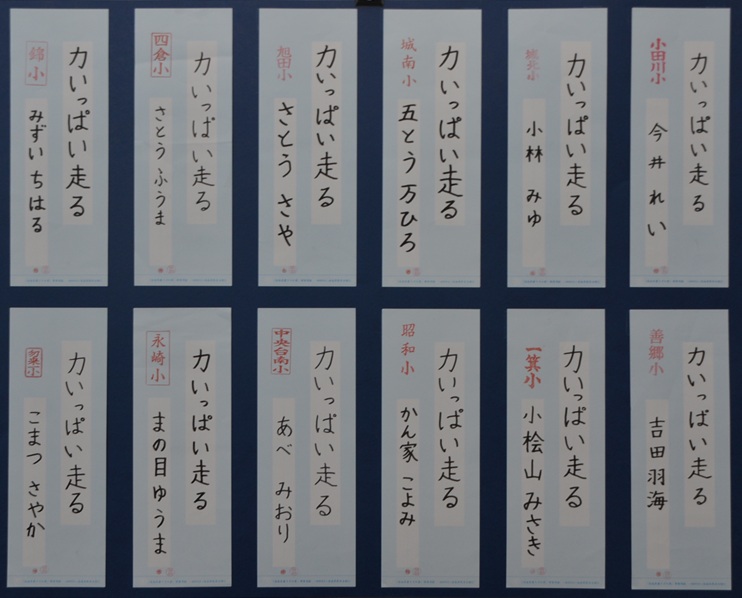 小田川小
力いっぱい走る
今井れい
城北小
力いっぱい走る
小林 みゆ
城南小
力いっぱい走る
五とう万ひろ
旭田小
力いっぱい走る
さとう さや
四倉小
力いっぱい走る
さとう ふうま
錦小
力いっぱい走る
みずい ちはる
善郷小
力いっぱい走る
吉田羽海
一箕小
力いっぱい走る
小桧山みさき
昭和小
力いっぱい走る
かん家 こよみ
中央台南小
力いっぱい走る
あべ みおり
永崎小
力いっぱい走る
まの目ゆうま
力いっぱい走る
こまつ さやか